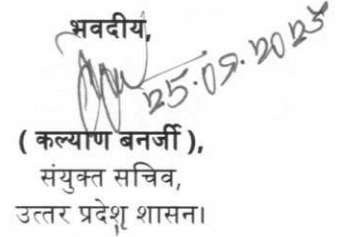 भवदीय,
25.09.2023
( कल्याण बनर्जी ),
संयुक्त सचिव,
उत्तर प्रदेश शासन।